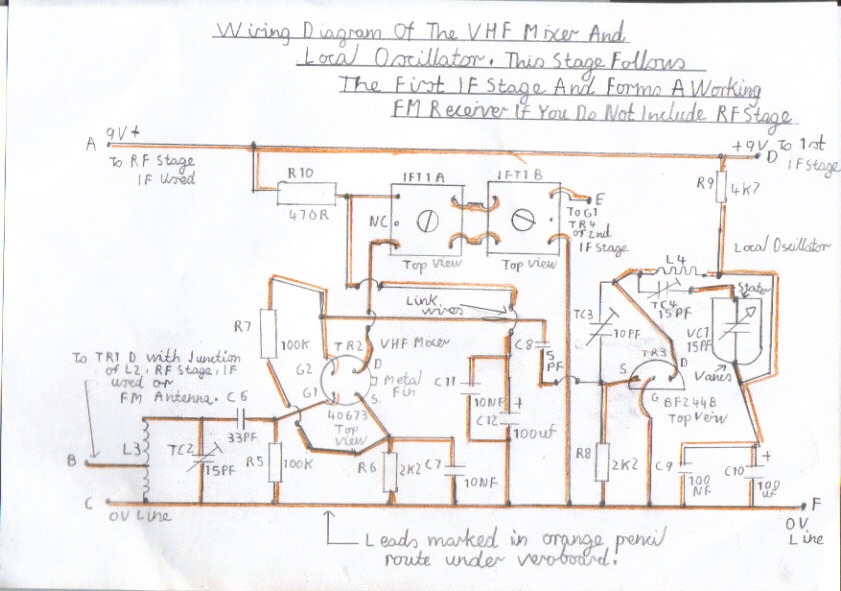 Wiring Diagram Of The VHF Mixer And
Local Oscillator. This Stage Follows
The First IF Stage And Forms A Working
FM Receiver If You Do Not Include RF Stage
A
9V+
To RF Stage
IF Used
+9V To 1rst
D
IF Stage
R10
470R
IFT1A
IFT1B
NC
E
To G1
TR4
of 2nd
IF Stage
Top View
Top View
R9
4K7
Local Oscillator
L4
TC4
15PF
Stator
VC1
15PF
Vanes
Link
wires
TC3
10PF
R7
100K
TR2
VHF Mixer
C8
5
PF
TR3
S
D
G
BF244B
Top Veiw
G2
G1
D
S
Metal
Fin
40673
Top
view
C11
10NF
C12
+
100uf
To TR1 D with Junction
of L2, RF Stage, IF
used or
FM Antenna.
C6
33PF
L3
TC2
15PF
R5
100K
R6
2K2
C7
10NF
R8
2K2
C9
100
NF
C10
+
100
uf
B
C
0V Line
F
0V
Line
Leads marked in orange pencil
route under veroboard.